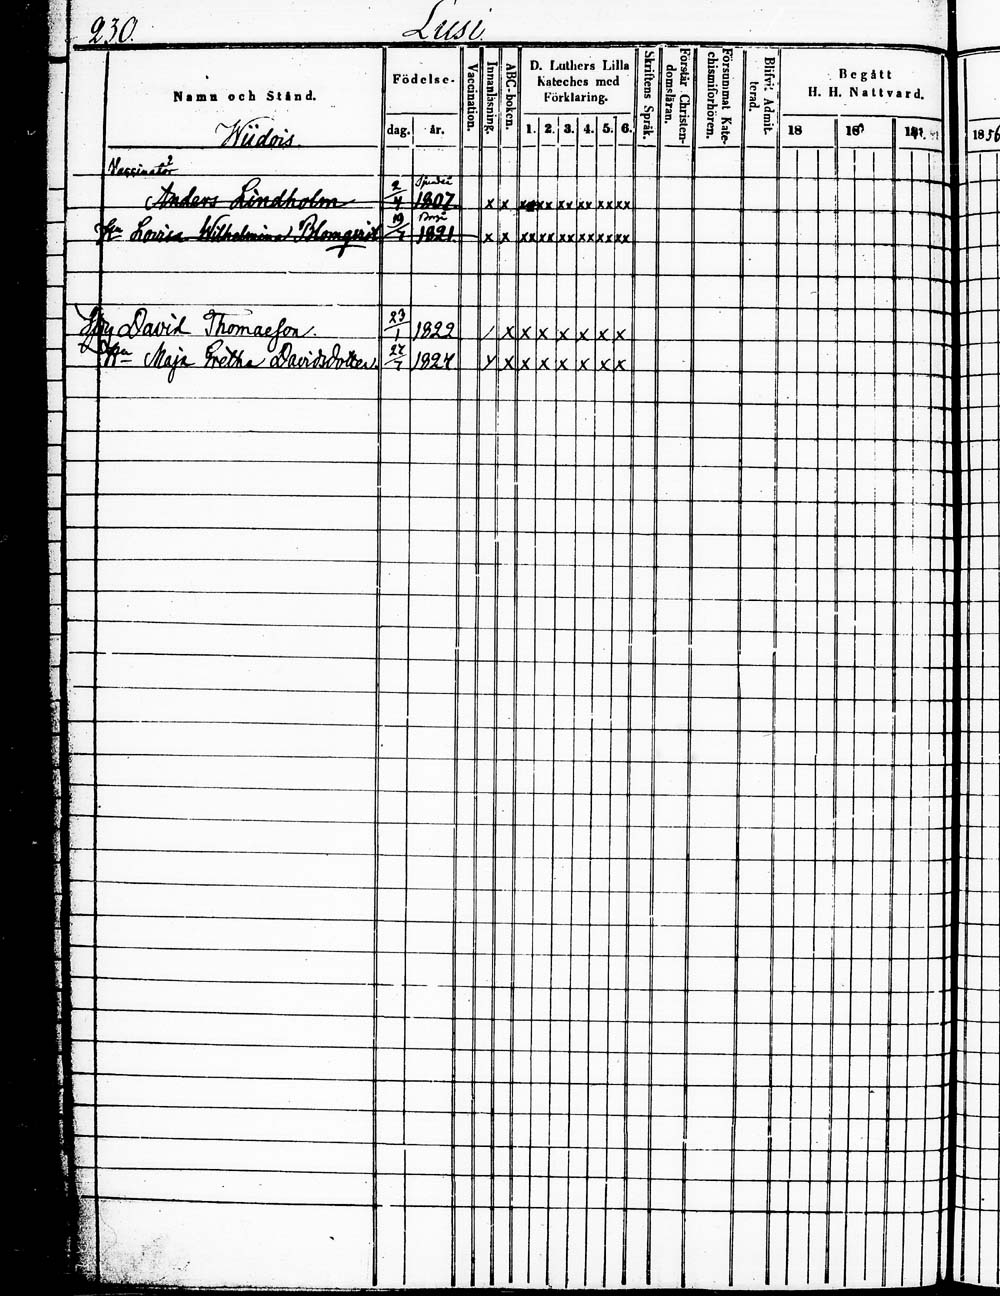 230. Lusi.
Namn och Stånd.
Födelse-
dag. år.
Vaccination.
Innanläsning.
ABC-boken.
D. Luthers Lilla
Kateches med
Förklaring.
1. 2. 3. 4. 5. 6.
Skriftens Språk.
Förstår Christen-
domsläran.
Försummat Kate-
chismiförhören.
Blifvit Admit-
terad.
Begått
H. H. Nattvard.
18 18 18
1856
Wiidois.
Vaccinator
Anders Lindholm 2/4 1807. x x xx xx xx xx xx xx
Hu Lovisa Wilhelmina Blomqvist 19/7 1821. x x xx xx xx xx xx xx
David Thomasson. 23/1 1822 / x x x x x x x
Hu Maja Gretha Davidsdotter. 27/7 1824 x x x x x x x x